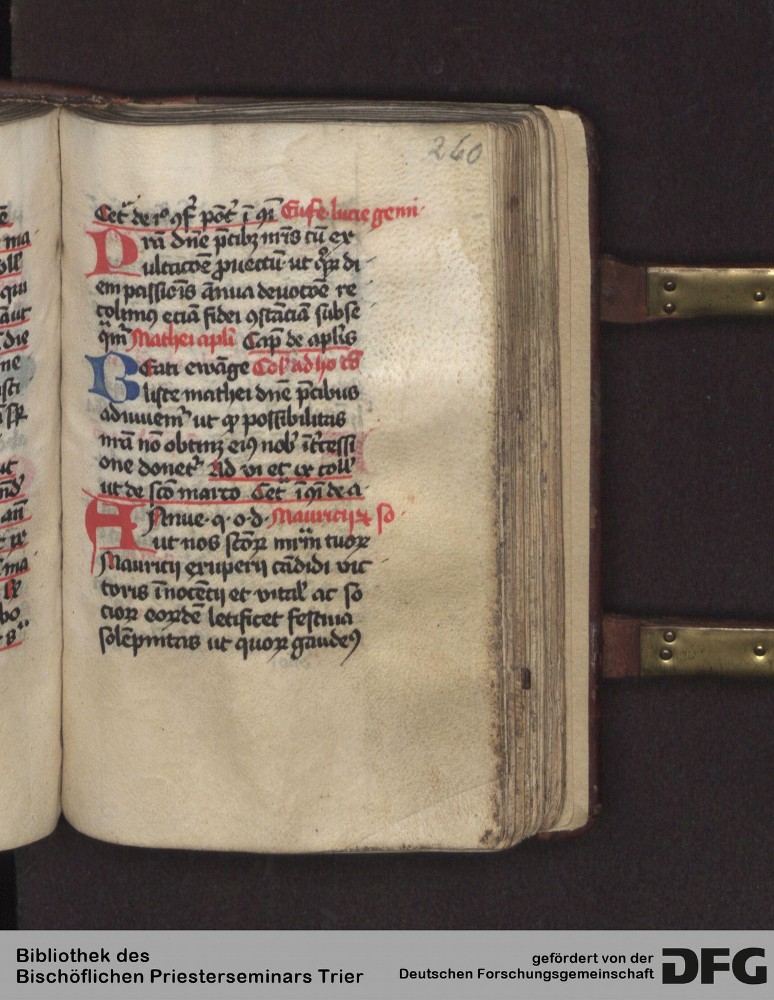 260
Cet̄ de i⁰ ꝯf̄ pōt̄ ī q̄i Eufe. lucie gemi
Prā dn̄e p̄cibꝫ nr̄is cū ex
ultacōe ꝓuectū ut q̄ꝝ di
em passiōis ānua deuotōe re
colimꝰ eciā fidei ꝯstāciā subse
q̄m̄ Mathei apl̄i Cap̄ de apl̄is
Beati ewāge Col̄ ad ho c̄s
liste mathei dn̄e p̄cibus
adiuuem̄ ut q̄ possibilitas
nr̄a nō obtinꝫ eiꝰ nob̄ īt̄cessi
one donet̄ Ad vi et ix coll̄
ut de sc̄o marco Cet̄ ī q̄i de a
Annue. q. o. d. Mauricij ⁊ so
ut nos sc̄oꝝ mr̄m̄ tuoꝝ
Mauricij exuperij cādidi vic
toris īnocētij et vital̄ ac so
cioꝝ eoꝝdē letificet festiua
solēpnitas ut quoꝝ gaudeꝰ
ma
oll̄
qui
aut
die
ne
sci
ut
ān̄
ma
bo
Bibliothek des
Bischöflichen Priesterseminars Trier
gefördert von der
Deutschen Forschungsgemeinschaft
DFG